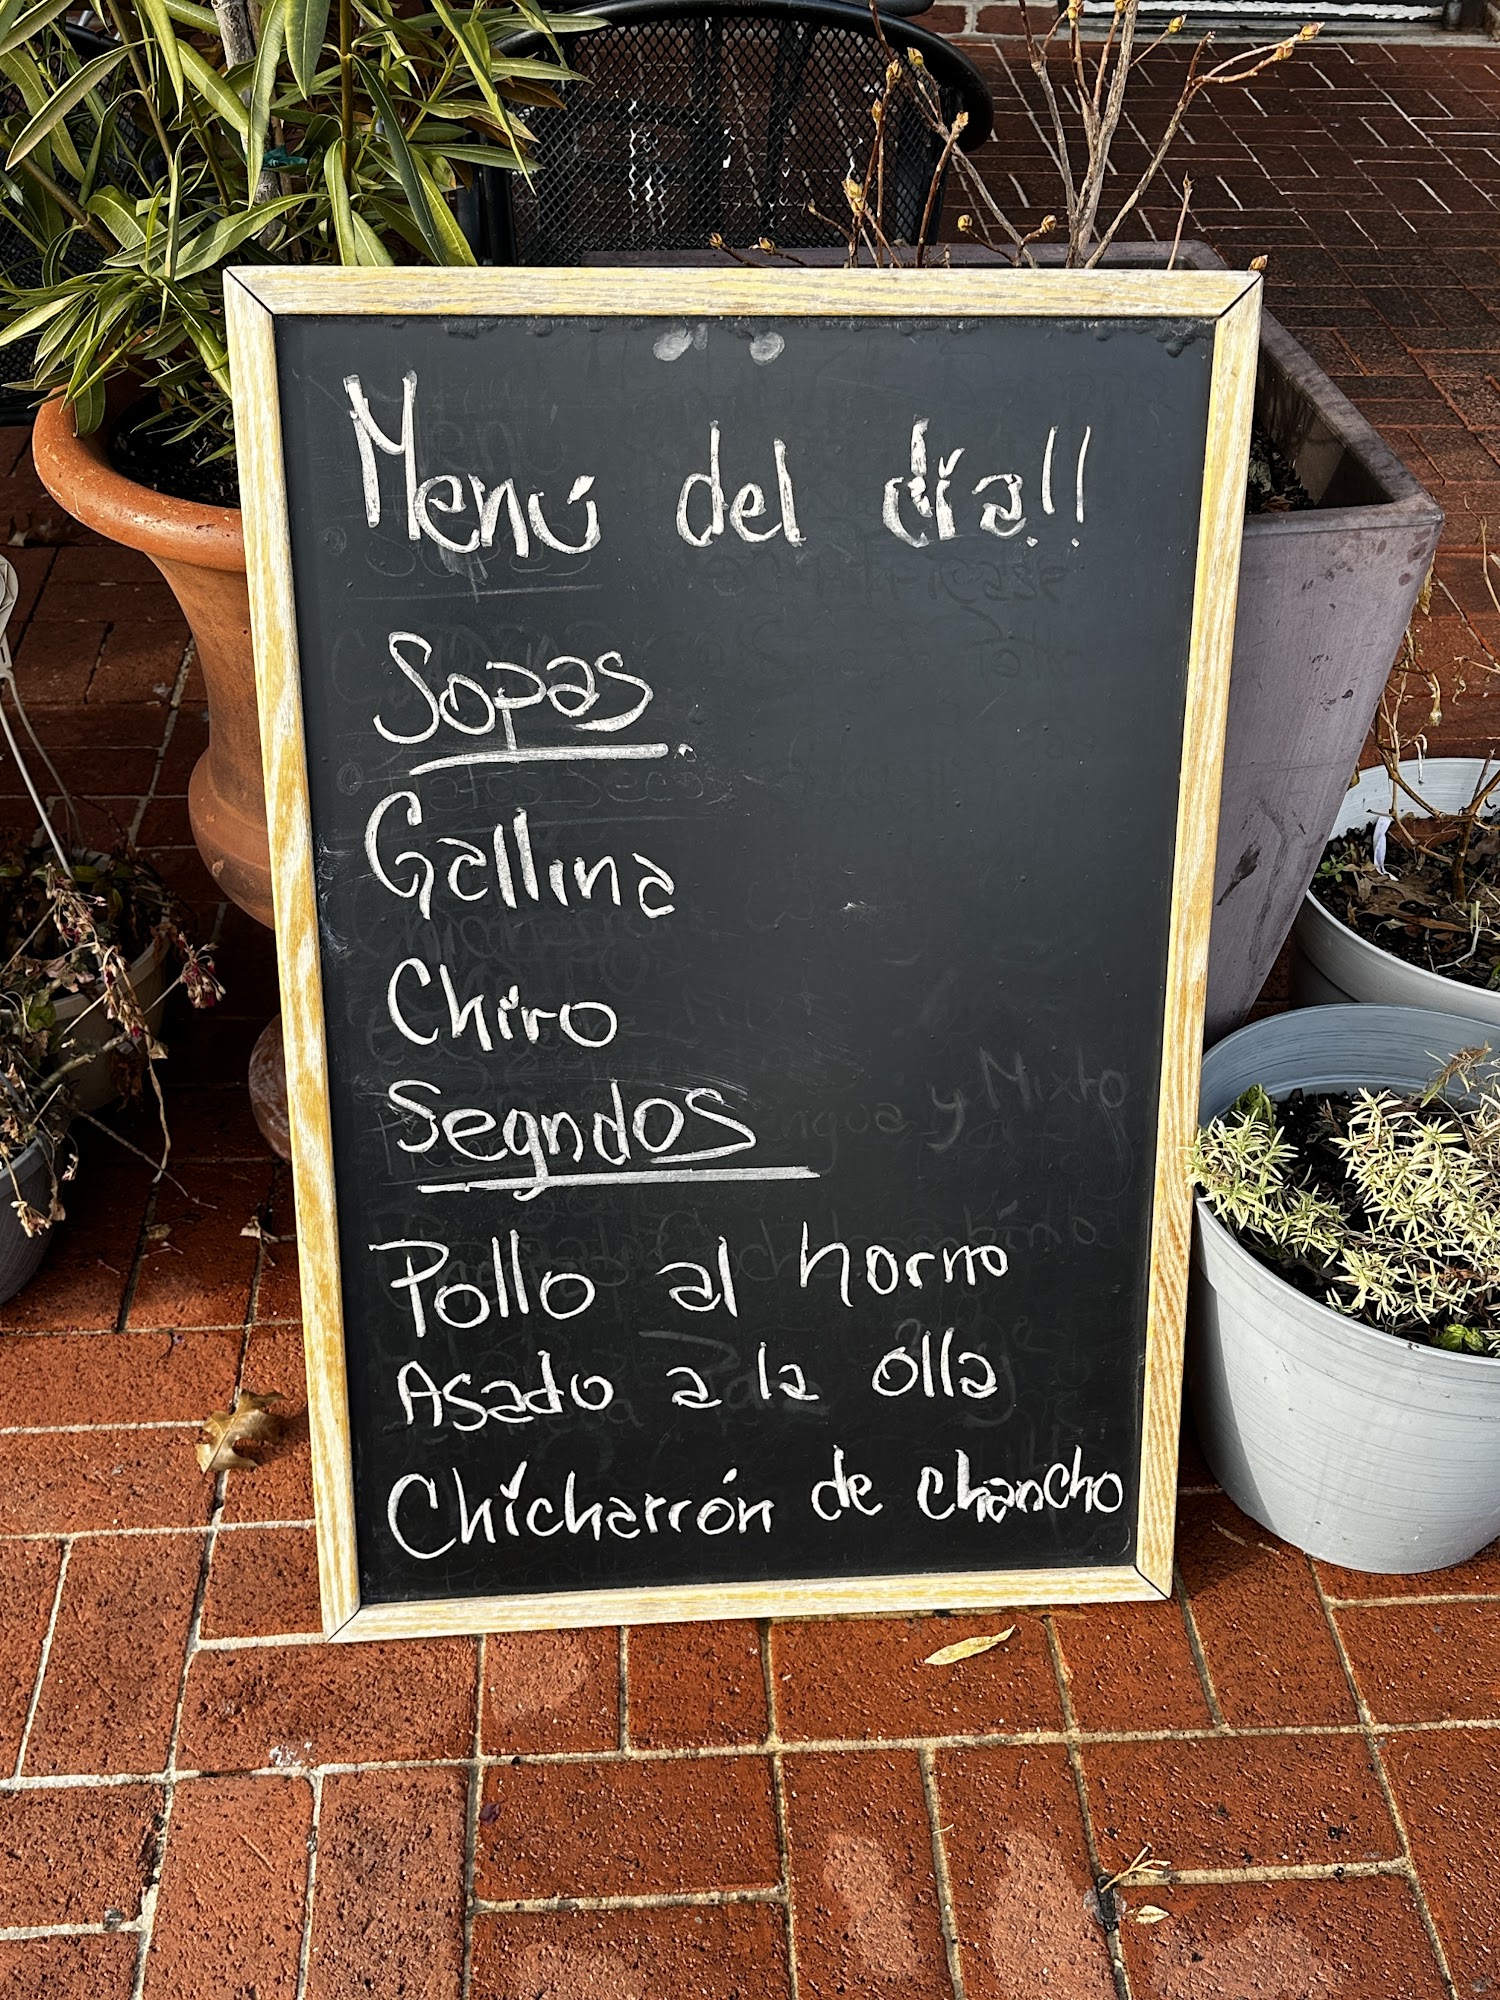 Menú del día!!
Sopas
Gallina
Chiro
Segndos
Pollo al horno
Asado a la olla
Chicharrón de chancho